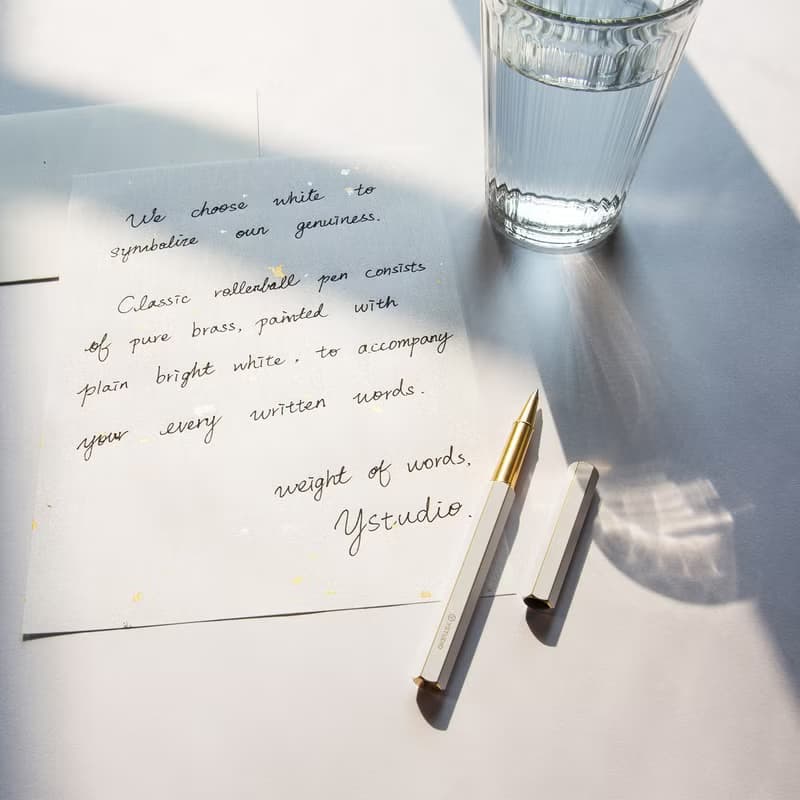 We choose white to
symbolize our genuiness.
Classic rollerball pen consists
of pure brass, painted with
plain bright white, to accompany
your every written words.
weight of words,
Ystudio.
YSTUDIO